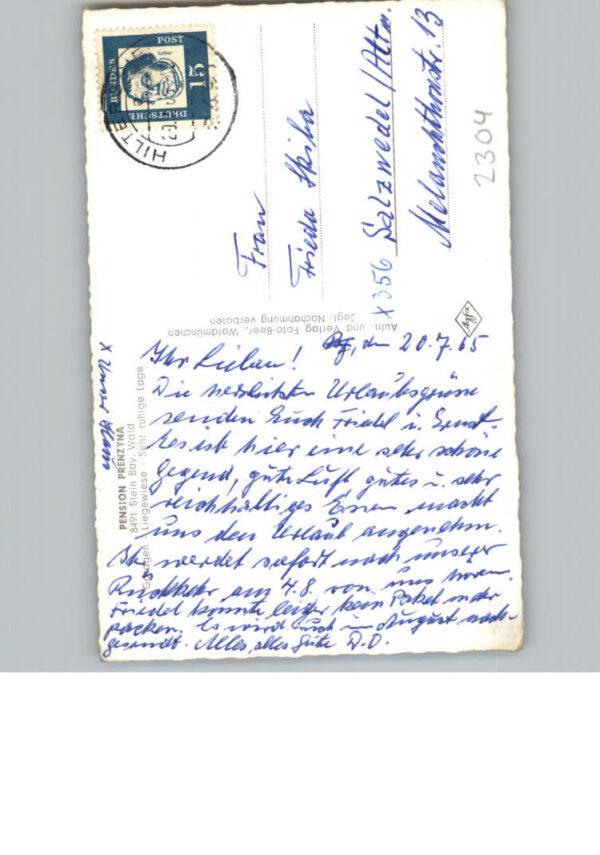 Ihr Lieben! den 20.7.65
Die herzlichsten Urlaubsgrüsse
senden Euch Friedel u. Ernst.
Es ist hier eine sehr schöne
Gegend, gute Luft gutes u. sehr
reichhaltiges Essen macht
uns den Urlaub angenehm.
Ihr werdet sofort nach unserer
Rückkehr am 4.8. von uns hören.
Friedel konnte leider kein Paket mehr
packen. Es wird Euch im August nach-
gesandt. Alles, alles Gute D.O.
x unser
PENSION PRENZYNA
8491 Stein Bay. Wald
Liegewiese - Sehr ruhige Lage
Aufn. und Verlag Foto-Beer, Waldmünchen
Jegl. Nachahmung verboten
Agfa
DEUTSCHE
BUNDES
POST
Luther
15
HILTE
Frau
Frieda Skiba
X356 Salzwedel/Altm.
Melanchthonstr. 13
2304